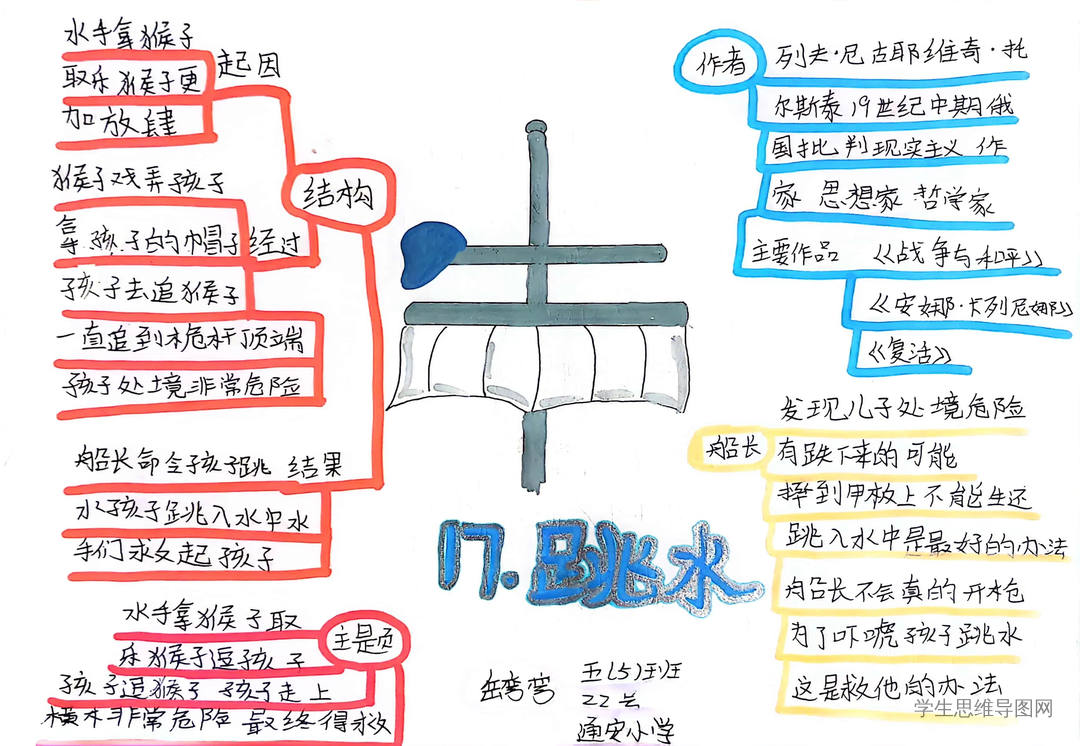 水手拿猴子
取乐猴子更
加放肆
起因
结构
猴子戏弄孩子
拿孩子的帽子
经过
孩子去追猴子
一直追到桅杆顶端
孩子处境非常危险
船长命令孩子跳
结果
水孩子跳入水中水
手们求起孩子
水手拿猴子取
乐猴子逗孩子
孩子追猴子 孩子走上
横木非常危险 最终得救
主题
17.跳水
弯弯
五(5)班
22号
通安小学
作者
列夫·尼古耶维奇·托
尔斯泰19世纪中期俄
国批判现实主义 作
家 思想家 哲学家
主要作品 《战争与和平》
《安娜·卡列尼娜》
《复活》
船长
发现儿子处境危险
有跌下来的可能
摔到甲板上不能生还
跳入水中是最好的办法
船长不会真的开枪
为了吓唬孩子跳水
这是救他的办法
学生思维导图网